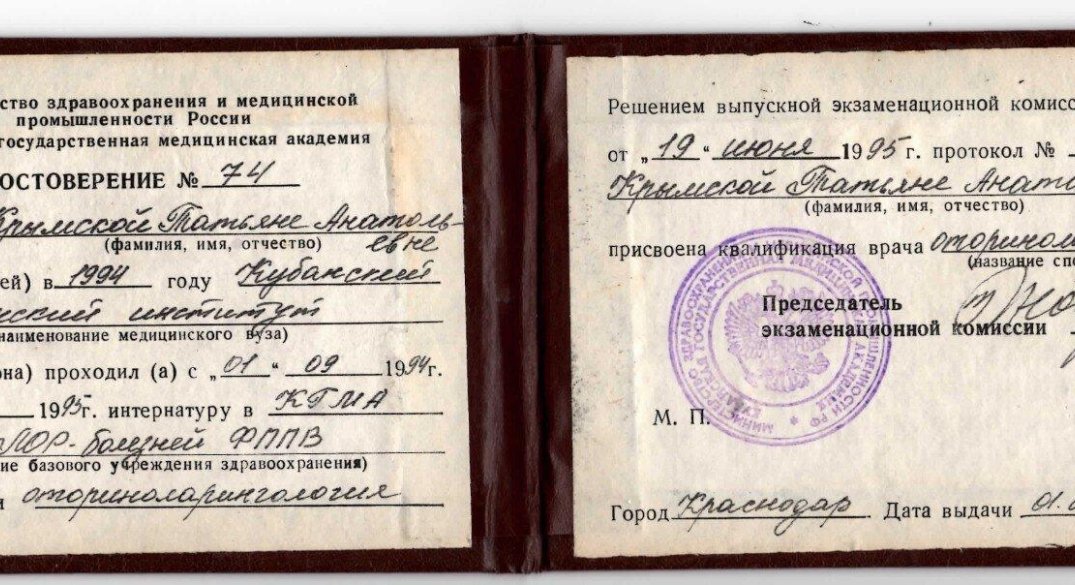 ство здравоохранения и медицинской
промышленности России
государственная медицинская академия
ОСТОВЕРЕНИЕ № 74
Крымской Татьяне Анатоль-
(фамилия, имя, отчество) евне
ей) в 1994 году Кубанский
ский институт
наименование медицинского вуза)
она) проходил (а) с „01“ 09 1994г.
1995г. интернатуру в КГМА
ЛОР-болезней ФППВ
ие базового учреждения здравоохранения)
и оториноларингология
Решением выпускной экзаменационной комисс
от „19“ июня 1995г. протокол №
Крымской Татьяне Анато
(фамилия, имя, отчество)
присвоена квалификация врача оторинол
(название спе
Председатель
экзаменационной комиссии
М. П.
Город Краснодар. Дата выдачи 01.